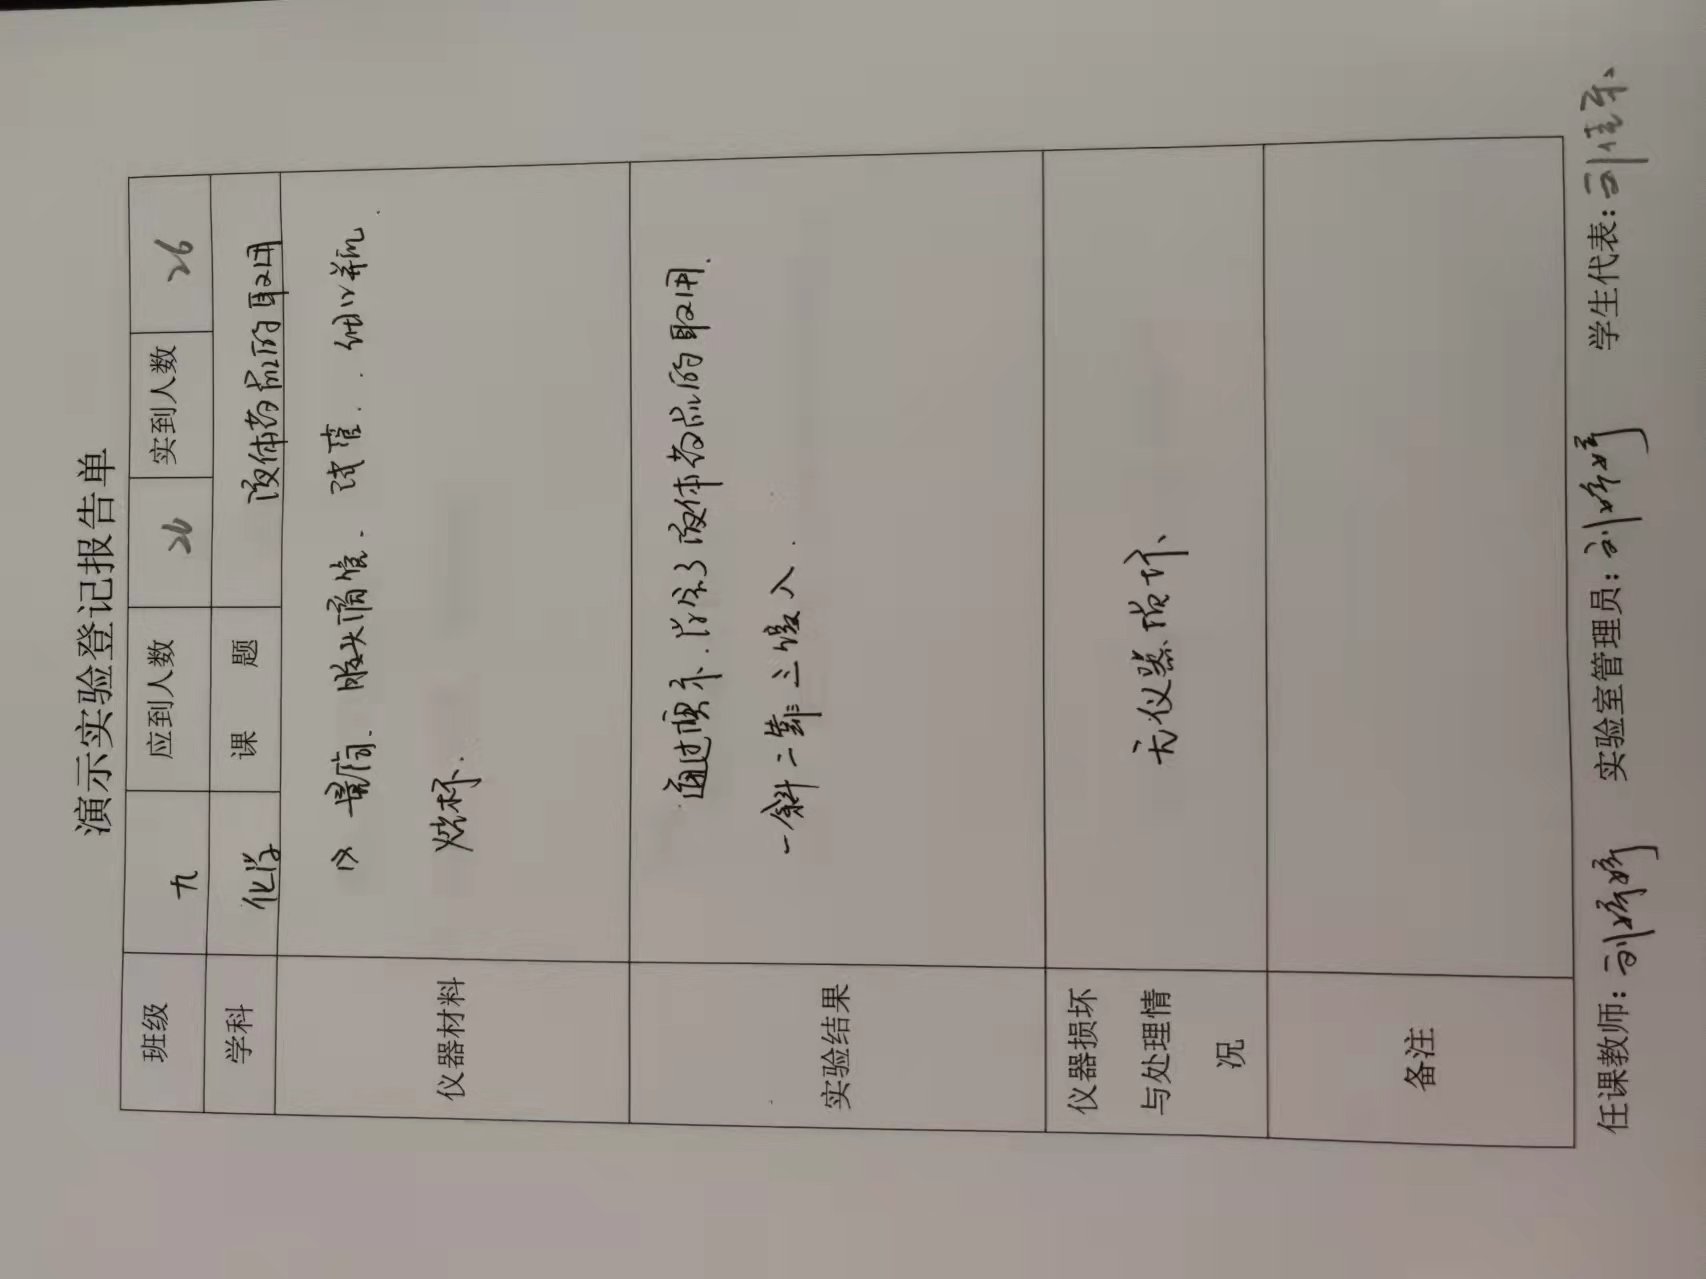 演示实验登记报告单
班级 九 应到人数 26 实到人数 26
学科 化学 课 题 液体药品的取用
仪器材料 量筒、胶头滴管、试管、细口瓶
烧杯.
实验结果 通过演示,学会了液体药品的取用.
一斜二靠三缓入.
仪器损坏
与处理情
况
无仪器损坏、
备注
任课教师:刘婷婷 实验室管理员:刘婷婷 学生代表: